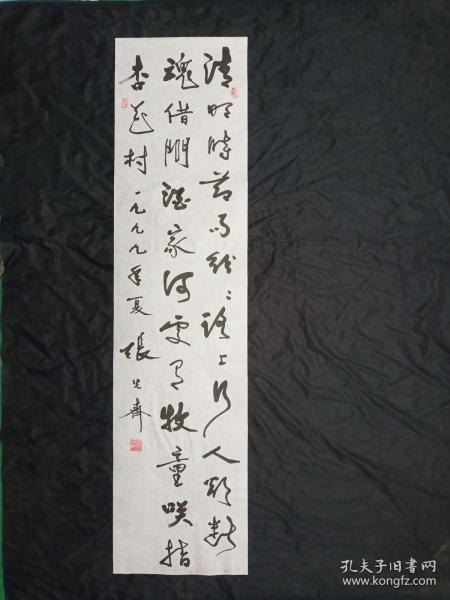 清明時節雨紛〻路上行人欲斷
魂借問酒家何處有牧童咲指
杏花村 一九九九年夏 張
孔夫子旧书网
www.kongfz.com